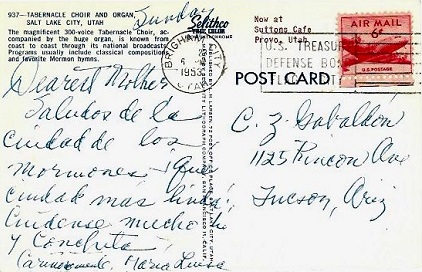 937-TABERNACLE CHOIR AND ORGAN,
SALT LAKE CITY, UTAH
The magnificent 300-voice Tabernacle Choir, ac-
companied by the huge organ, is known from
coast to coast through its national broadcasts.
Programs usually include classical compositions
and favorite Mormon hymns.
Sunday
Dearest Mother
Saludos de la
ciudad de los
mormones! Que
ciudad más linda!
Cuídense mucho tú
y Conchita
Cariñosamente, Maria Luisa
TRUE COLOR
Now at
Suttons Cafe
Provo, Utah
BRIGHAM CITY
1953
UTAH
U.S. TREASURY
DEFENSE BO
AIR MAIL
6¢
U.S. POSTAGE
POST CARD
C. Z. Gabaldón
1125 Rincon Ave
Tucson, Ariz